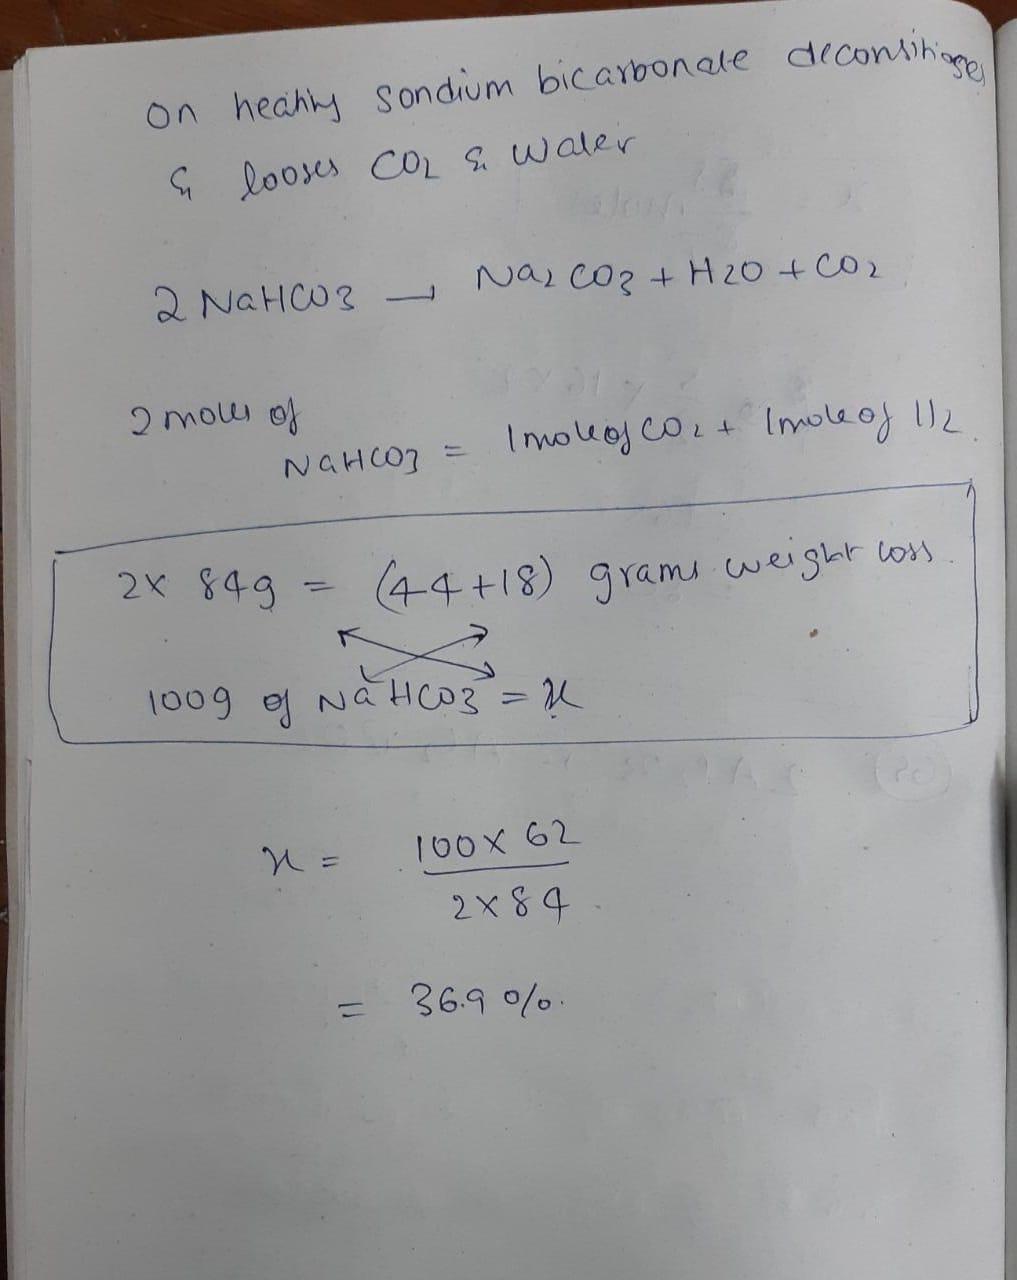 on heating sondium bicarbonate
& looses CO2 & Water
2 NaHCO3 → Na2 CO3 + H2O + CO2
2 moles of
NaHCO3 = 1mole of CO2 + 1mole of H2
2× 84g = (44+18) grams weight loss
100g of NaHCO3 = x
x = 100× 62
2×84
= 36.9 %.